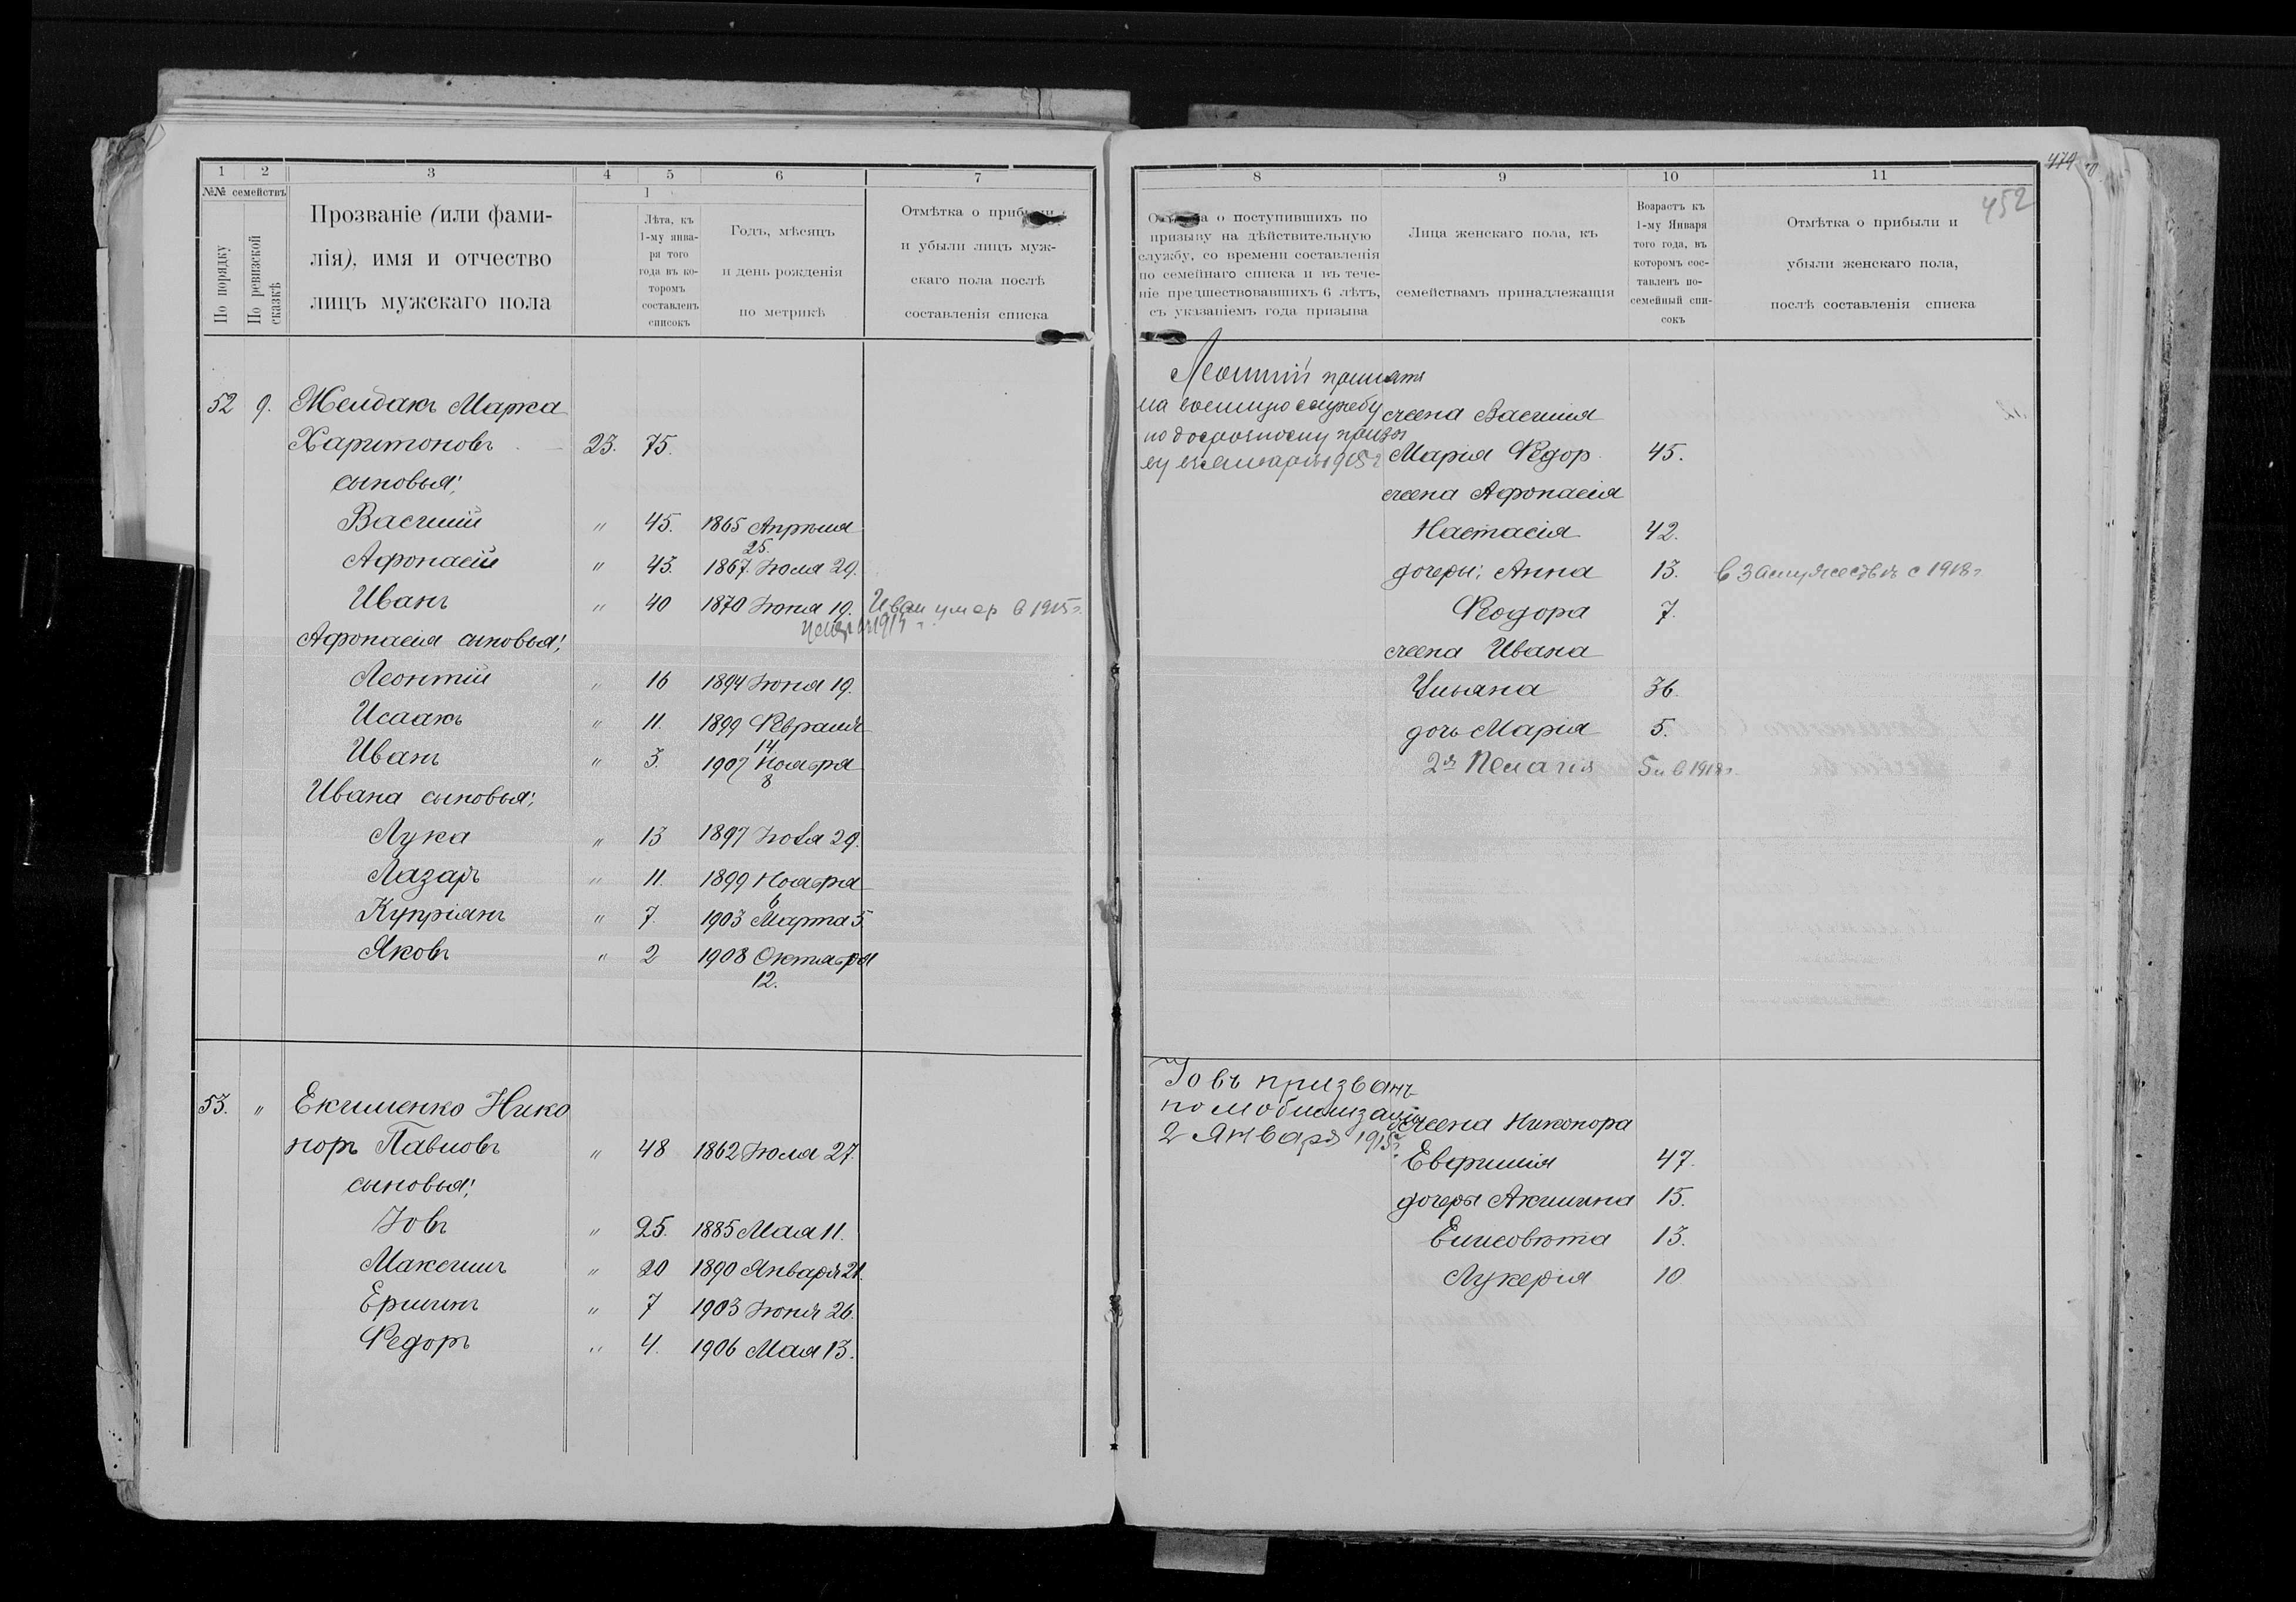 1 2 3 4 5 6 7
№№ семействъ
По порядку
По ревизской сказкѣ
Прозваніе (или фами-
лія), имя и отчество
лицъ мужскаго пола
1
Лѣта, къ
1-му янва-
ря того
года въ ко-
торомъ
составленъ
списокъ
Годъ, мѣсяцъ
и день рожденія
по метрикѣ
Отмѣтка о прибыли
и убыли лицъ муж-
скаго пола послѣ
составленія списка
52 9. Желдакъ Марка
Харитоновъ 23. 75.
сыновья:
Василій " 45. 1865 Апрѣля
25.
Афонасій " 43. 1867 Іюля 29.
Иванъ " 40 1870 Іюня 19. Иван умер в 1915 г.
Афонасія сыновья:
Леонтій " 16 1894 Іюня 19.
Исаакъ " 11. 1899 Февраля
14
Иванъ " 3. 1907 Ноября
8
Ивана сыновья:
Лука " 13 1897 29.
Лазарь " 11. 1899 Ноября
6
Купріянъ " 7. 1903 Марта 5.
Яковъ " 2 1908 Октября
12.
53. " Екименко Нико
норъ Павловъ " 48 1862 Іюля 27.
сыновья:
Іовъ " 25. 1885 Мая 11.
Максимъ " 20 1890 Января 21.
" 7 1903 Іюня 26.
Федоръ " 4. 1906 Мая 13.
8 9 10 11
474
452
о поступившихъ по
призыву на дѣйствительную
службу, со времени составленія
по семейнаго списка и въ тече-
ніе предшествовавшихъ 6 лѣтъ,
съ указаніемъ года призыва
Лица женскаго пола, къ
семействамъ принадлежащія
Возрастъ къ
1-му Января
того года, въ
которомъ сос-
тавленъ по-
семейный спи-
сокъ
Отмѣтка о прибыли и
убыли женскаго пола,
послѣ составленія списка
Леонтій принятъ
на военную службу
по досрочному призы
ву въ Январѣ 1915 г
жена Василія
Марія Федор. 45.
жена Афонасія
Настасія 42.
дочеры: Анна 13. в замужествѣ с 1918 г
Федора 7.
жена Ивана
Ульяна 36.
дочь Марія 5.
2я Пелагія 5 л в 1918 г.
Іовъ призванъ
по мобилизаціи
2 Января 1915 г.
жена Никонора
Евфимія 47.
дочеры Акилина 15.
Елисовета 13.
Лукерія 10